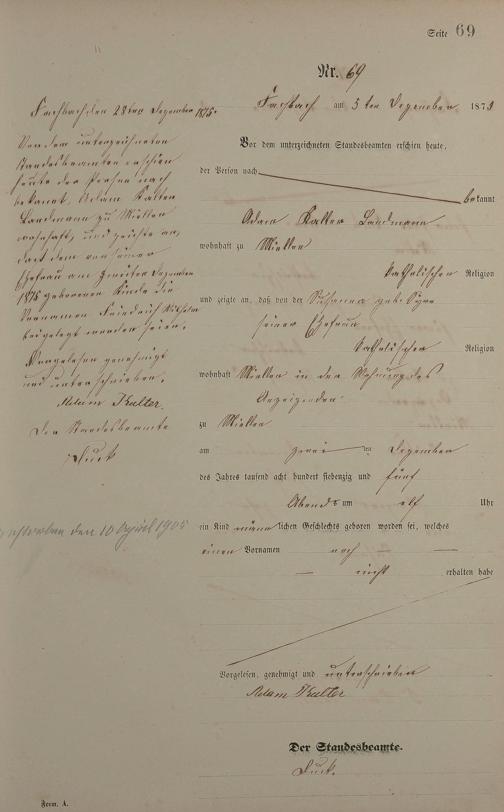 Seite 69
Nr. 69
Fachbach am 5 ten Dezember 1875
Vor dem unterzeichneten Standesbeamten erschien heute,
der Person nach
bekannt
Adam Kalter Landmann
wohnhaft zu Miellen
katholischer Religion
und zeigte an, daß von der Susanna geb.
seiner Ehefrau
katholischer Religion
wohnhaft Miellen in der Wohnung des
Anzeigenden
zu Miellen
am zwei ten Dezember
des Jahres tausend acht hundert siebenzig und fünf
Abends um elf Uhr
ein Kind männ lichen Geschlechts geboren worden sei, welches
einen Vornamen noch
nicht erhalten habe
Vorgelesen, genehmigt und unterschrieben
Adam Kalter
Der Standesbeamte.
Fachbach den 28ten Dezember 1875.
Vor dem unterzeichneten
Standesbeamten erschien
heute der Person nach
bekannt, Adam Kalter
Landmann zu Miellen
wohnhaft, und zeigte an,
daß dem von seiner
Ehefrau am zweiten Dezember
1875 geborenen Kinde die
Vornamen Friedrich Wilhelm
beigelegt worden seien.
Vorgelesen genehmigt
und unterschrieben.
Adam Kalter.
Der Standesbeamte
den 10 April 1905
Form. A.